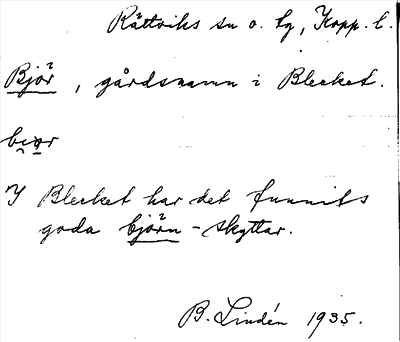 Rättviks sn o. tg, Kopp. l.
Björ, gårdsnamn i Blecket.
bior
I Blecket har det funnits
goda björn-skyttar.
B. Lindén 1935.